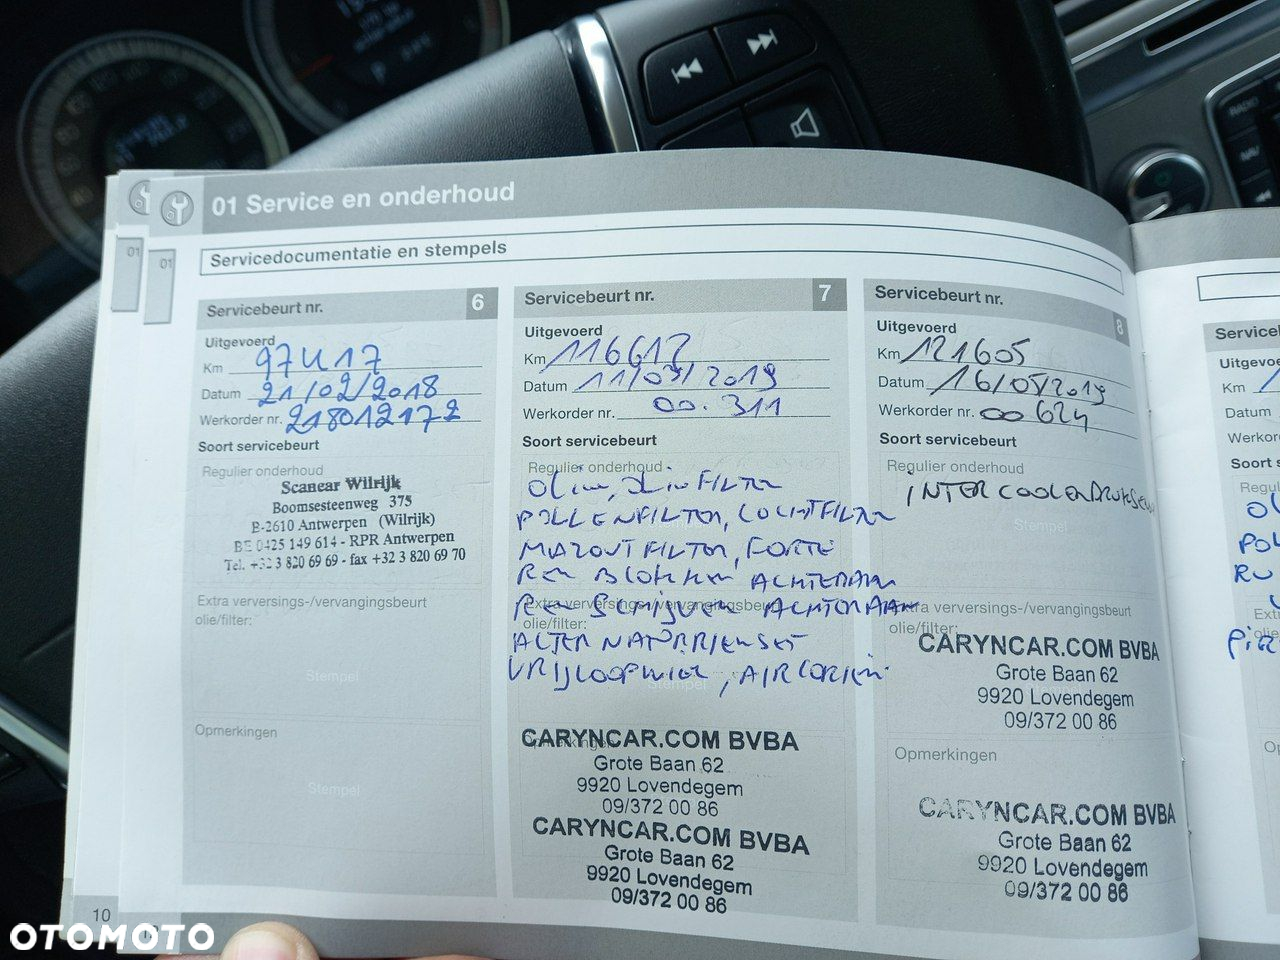 01 Service en onderhoud
01
01
Servicedocumentatie en stempels
Servicebeurt nr. 6
Uitgevoerd
Km 97417
Datum 21/02/2018
Werkorder nr. 218012172
Soort servicebeurt
Regulier onderhoud
Scanear Wilrijk
Boomsesteenweg 375
B-2610 Antwerpen (Wilrijk)
BE 0425 149 614 - RPR Antwerpen
Tel. +32 3 820 69 69 - fax +32 3 820 69 70
Extra verversings-/vervangingsbeurt
olie/filter:
Stempel
Opmerkingen
Stempel
10
Servicebeurt nr. 7
Uitgevoerd
Km 116612
Datum 11/03/2019
Werkorder nr. 00.311
Soort servicebeurt
Regulier onderhoud
OLIE, OLIEFILTER
POLLENFILTER, LUCHTFILTER
MAZOUTFILTER, FORTE
REM BLOKKEN ACHTERAAN
Extra verversings-/vervangingsbeurt
olie/filter:
REM SCHIJVEN ACHTERAAN
ALTERNATORRIEMSET
VRIJLOOPWIEL, AIRCORIEM
Stempel
Opmerkingen
CARYNCAR.COM BVBA
Grote Baan 62
9920 Lovendegem
09/372 00 86
CARYNCAR.COM BVBA
Grote Baan 62
9920 Lovendegem
09/372 00 86
Servicebeurt nr. 8
Uitgevoerd
Km 121605
Datum 16/05/2019
Werkorder nr. 00624
Soort servicebeurt
Regulier onderhoud
Stempel
Extra verversings-/vervangingsbeurt
olie/filter:
CARYNCAR.COM BVBA
Grote Baan 62
9920 Lovendegem
09/372 00 86
Opmerkingen
CARYNCAR.COM BVBA
Grote Baan 62
9920 Lovendegem
09/372 00 86
Uitgevoe
Km
Datum
Werkor
Soort s
RADIO
NAV
OTOMOTO